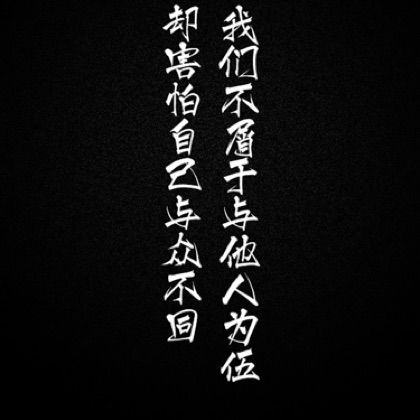 我们不屑于与他人为伍
却害怕自己与众不同